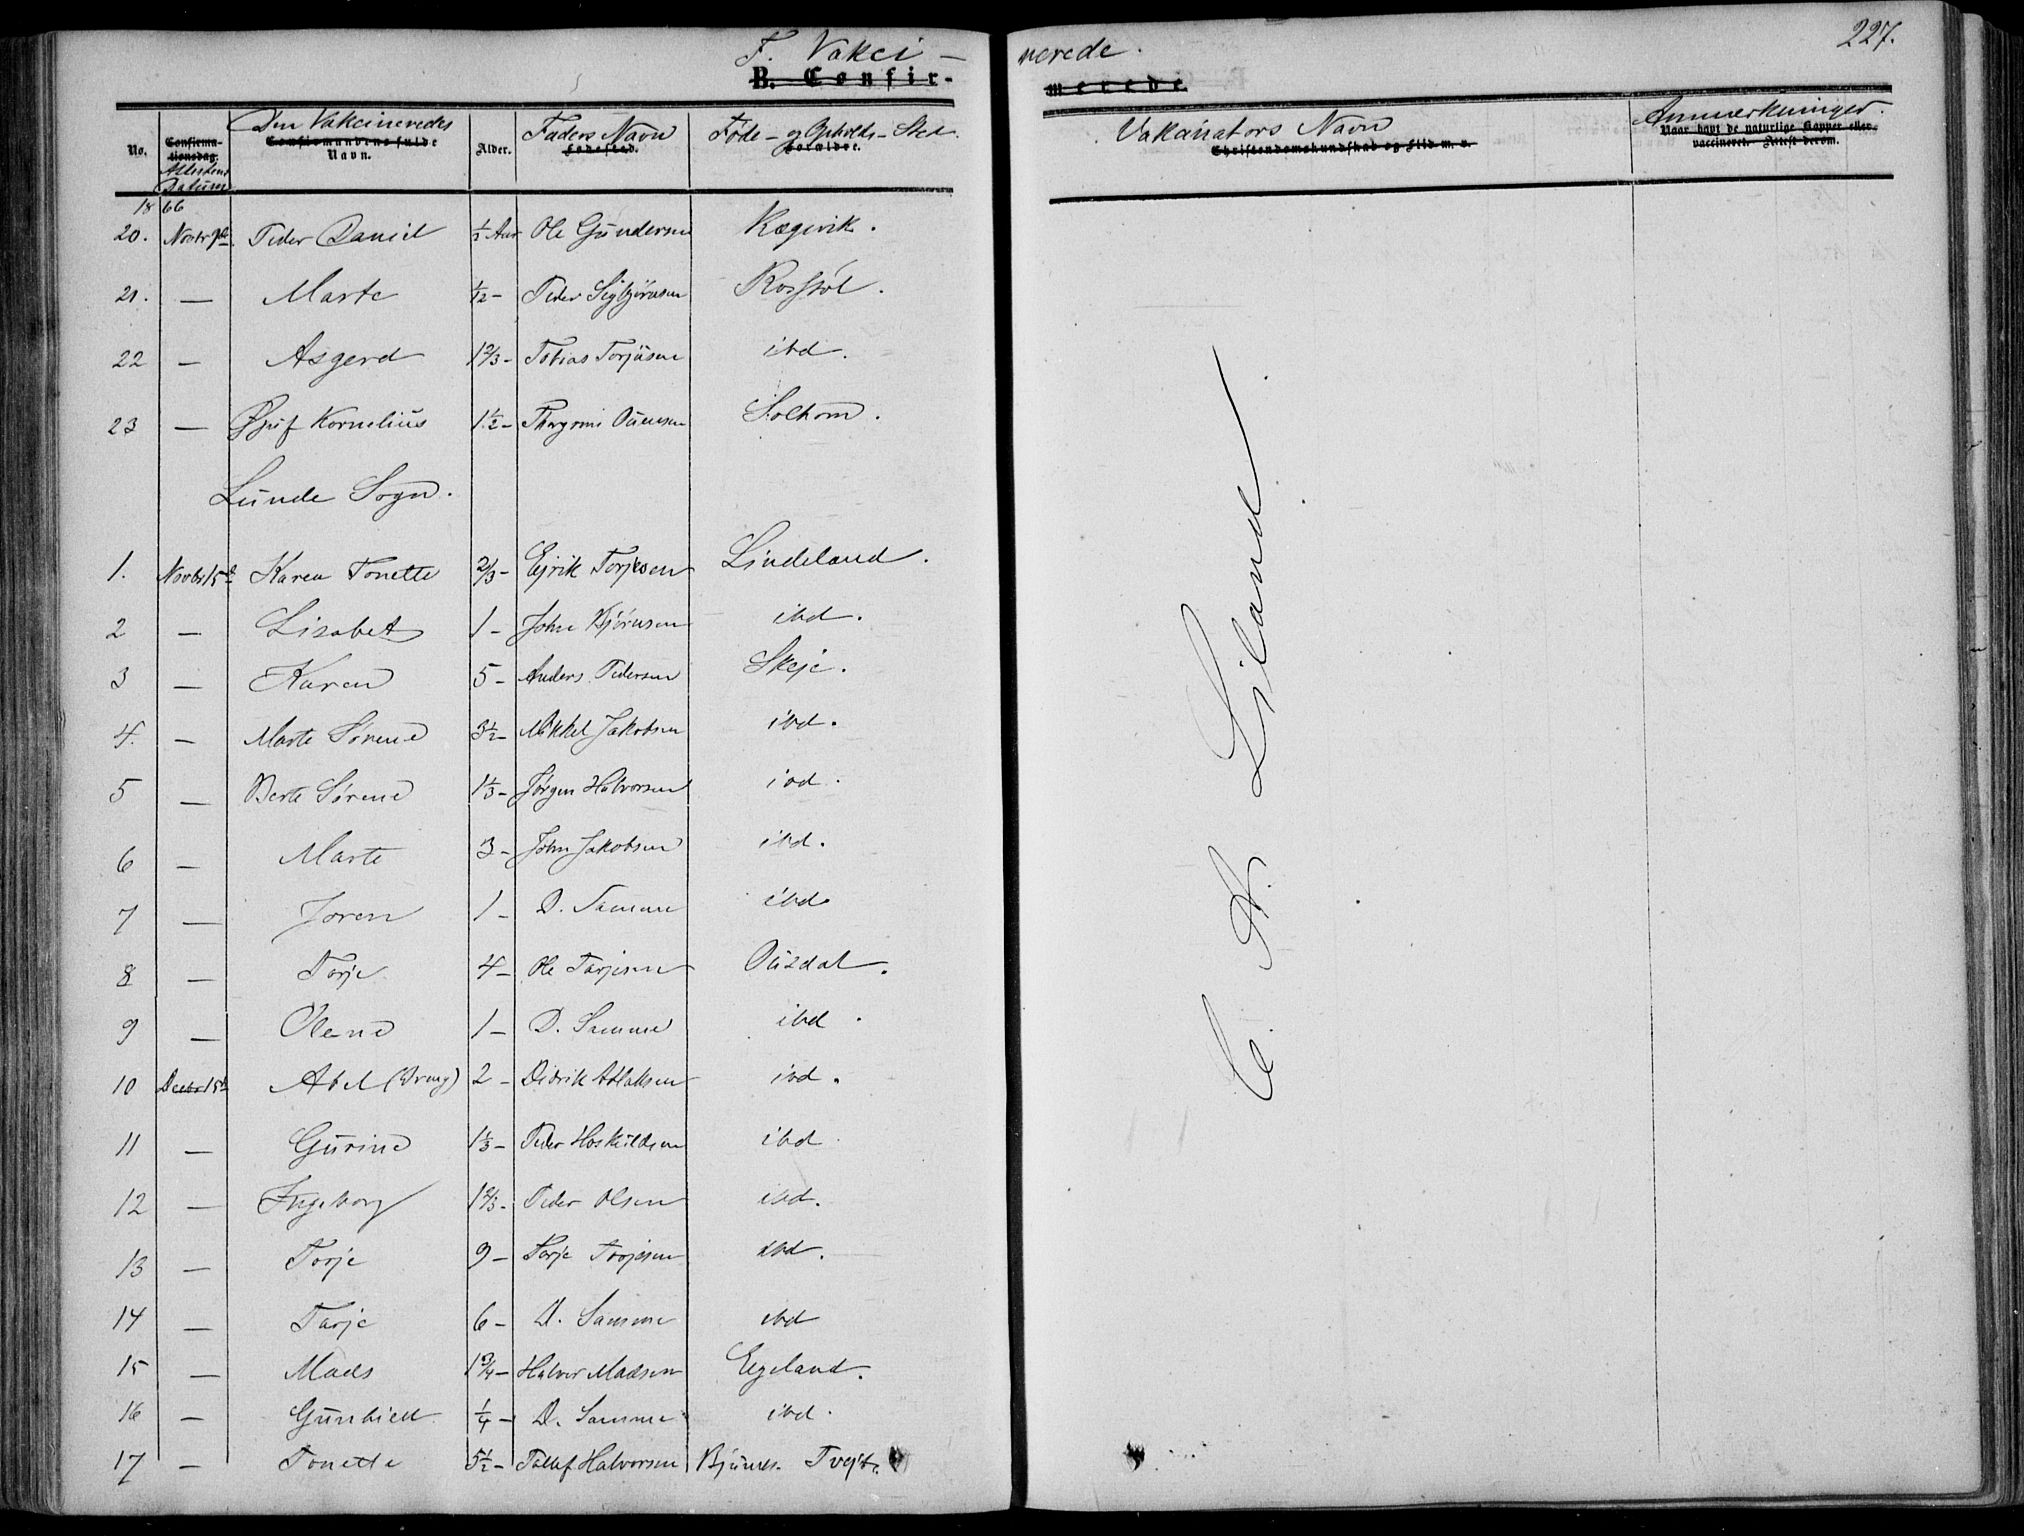 F. Vakci- nerede. 227.
B. Confir- merede
No. Confirma-tionsdag. Attestens Datum Den Vakcineredes Confirmandens fulde Navn. Alder. Faders Navn Fødested. Føde- og Opholds-Sted. Forældre. Vakcinators Navn Christendomskundskab og Flid m. v. Anmærkninger. Naar havt de naturlige Kopper eller vaccineret. Attest derom.
1866
20. Novbr Peder Daniel ½ Aar Ole Gundersen Kægevik.
21. — Marte 1/12 - Peder Sigbjørnsen Rosstøl.
22 — Asgerd 1 2/3 - Tobias Torjusen ibd.
23 — Kornelius 1 ½ - Solhom.
Lunde Sogn.
1. Novbr 15de Karen Tonette 2/3 - Ejrik Torjesen Lindeland.
2 — Lisabet 1 - John Bjørnsen ibd.
3 — Karen 5 - Anders Pedersen Skeje.
4. — Marte Sørene 3 ½ - Mikkel Jakobsen ibd.
5 — Berte Sørene 1 1/3 - Jørgen Halvorsen ibd.
6 — Marte 3 - John Jakobsen ibd.
7 — Joren 1 - D. Samme ibd.
8 — Torje 4 - Ole Torjesen Ousdal.
9 — Olene 1 - D. Samme ibd.
10 Decbr 15de Abel (Dreng) 2 - Didrik Atlaksen ibd.
11 — Gurine 1 1/3 - Peder Hoskildsen ibd
12 — Ingeborg 1 2/3 - Peder Olsen ibd.
13 — Torje 9 - Torje Torjesen ibd.
14 — Tarje 6 - D. Samme ibd
15 — Mads 1 3/4 - Halvor Madsen Egeland.
16 — Gunhild ¼ - D. Samme ibd.
17 — Tonette 5 ½ - Tollef Halvorsen
C. A. Ejland